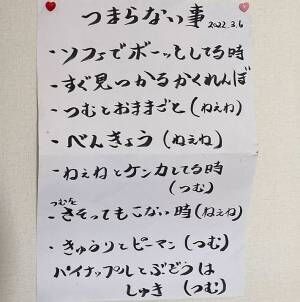 つまらない事 2022.3.6
・ソファでボーッとしてる時
・すぐ見つかるかくれんぼ
・つむとおままごと(ねぇね)
・べんきょう(ねぇね)
・ねぇねとケンカしてる時
(つむ)
つむを
・さそってもこない時(ねぇね)
・きゅうりとピーマン(つむ)
パイナップルとぶどうは
しゅき (つむ)